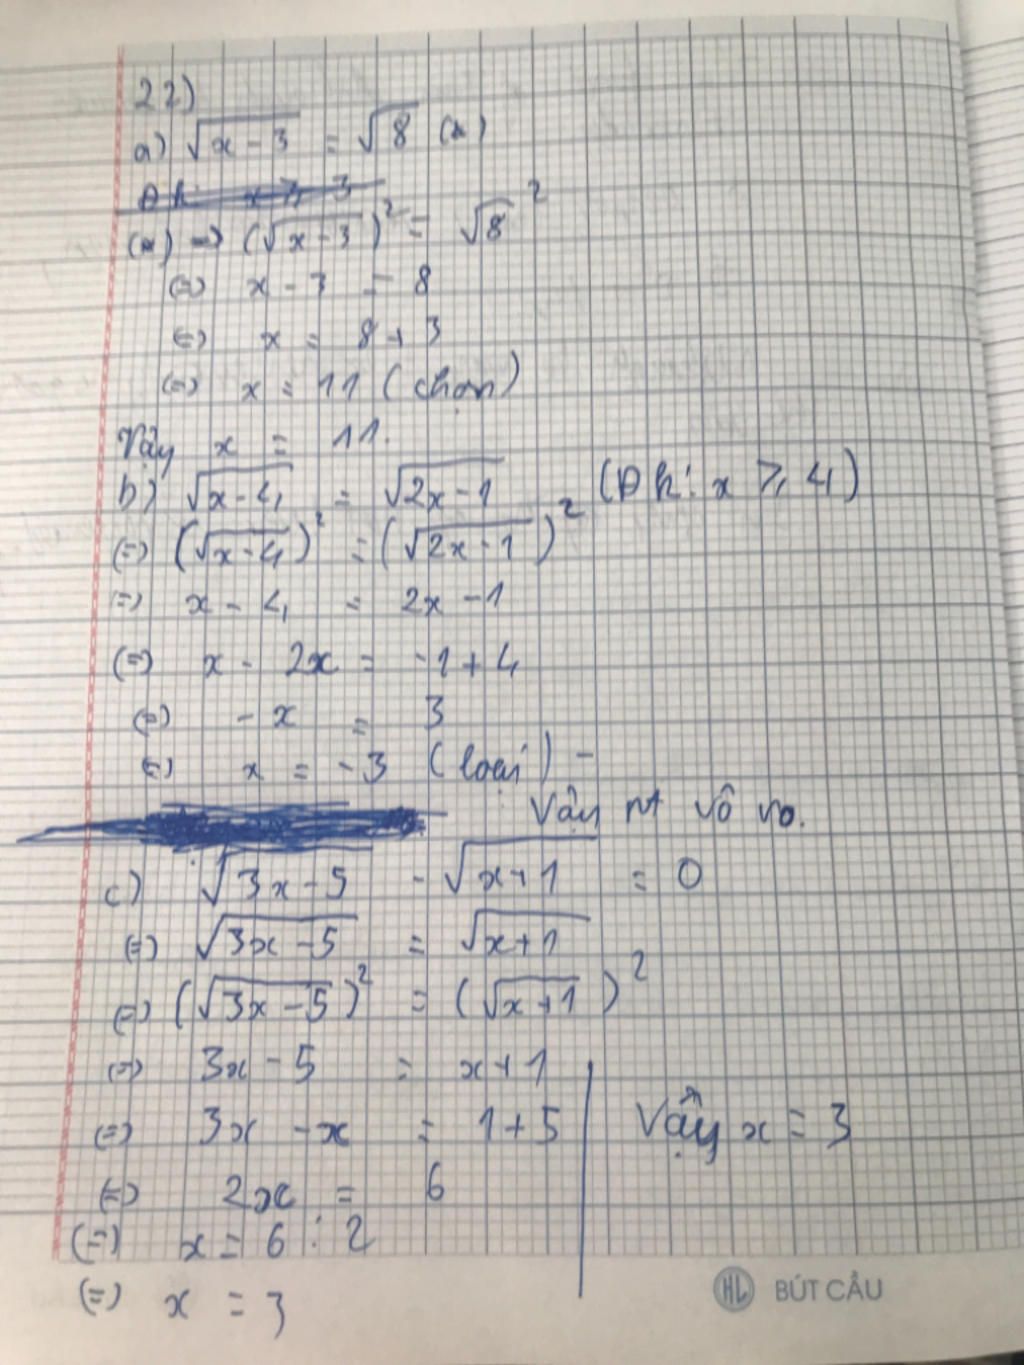 22)
a) √(x-3) = √8 (*)
(*) => (√(x-3))² = √8²
<=> x - 3 = 8
<=> x = 8 + 3
<=> x = 11 (chọn)
Vậy x = 11.
b) √(x-4) = √(2x-1) (Đk: x ≥ 4)
<=> (√(x-4))² = (√(2x-1))²
<=> x - 4 = 2x - 1
<=> x - 2x = -1 + 4
<=> - x = 3
<=> x = -3 (loại) -
Vậy pt vô no.
c) √(3x-5) - √(x+1) = 0
<=> √(3x-5) = √(x+1)
<=> (√(3x-5))² = (√(x+1))²
<=> 3x - 5 = x + 1
<=> 3x - x = 1 + 5
<=> 2x = 6
<=> x = 6 : 2
<=> x = 3
Vậy x = 3
HL BÚT CẦU